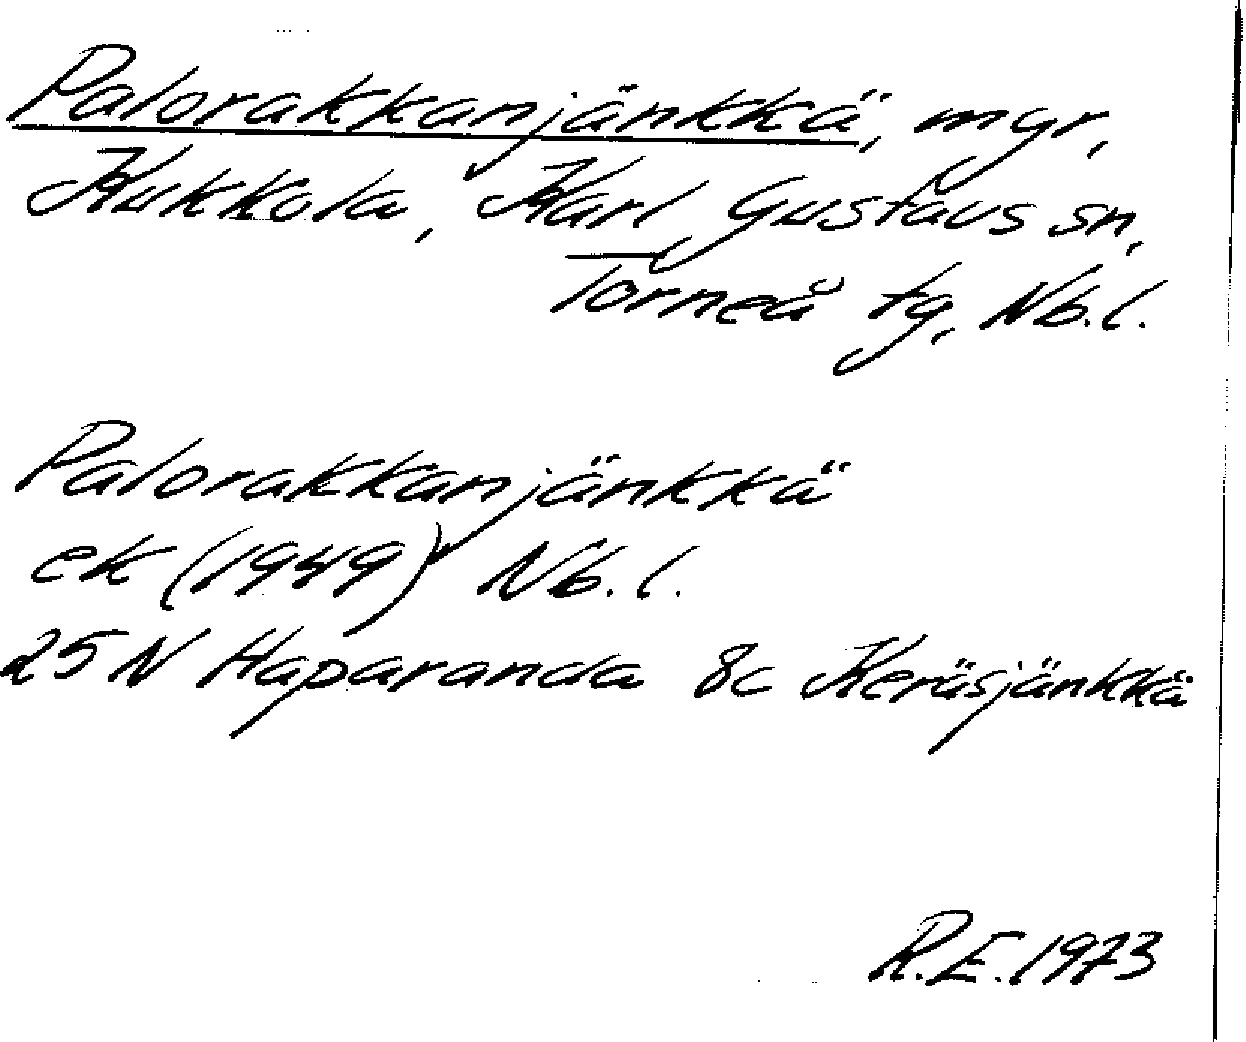 Palorakkanjänkkä, mgr,
Kukkola, Karl Gustavs sn,
Torneå tg, Nb.l.
Palorakkanjänkkä
ek (1949) Nb.l.
25N Haparanda 8c Keräsjänkkä
R.E. 1973